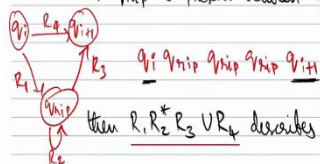 qi R4 qi+1
R1 R3
qi qrip qrip qrip qi+1
qrip
R2
then R1 R2* R3 ∪ R4 describes